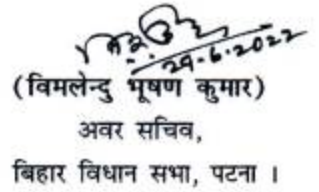 29.6.2022
(विमलेन्दु भूषण कुमार)
अवर सचिव,
बिहार विधान सभा, पटना ।